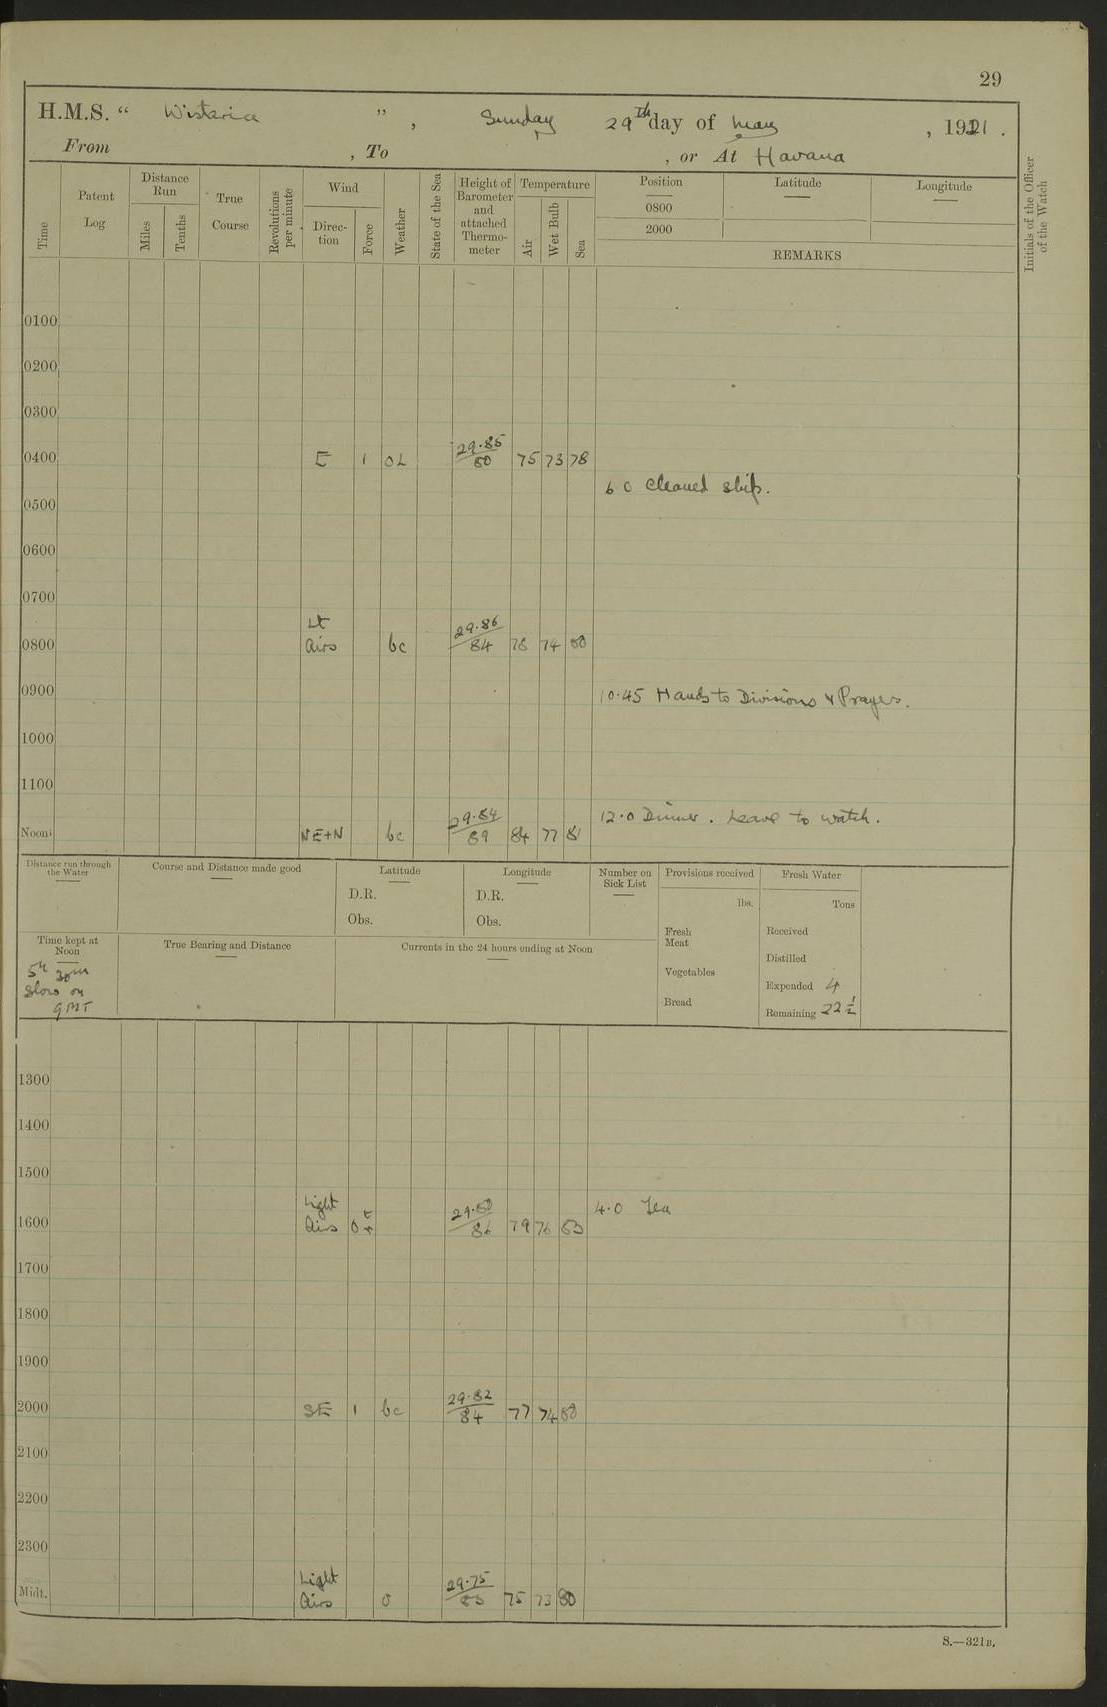 29
H.M.S. “ Wistaria ” , Sunday 29th day of May , 1921 .
From , To , or At Havana
Time
Patent Log
Distance Run
Miles
Tenths
True Course
Revolutions per minute
Wind
Direction
Force
Weather
State of the Sea
Height of Barometer and attached Thermometer
Temperature
Air
Wet Bulb
Sea
Position
0800
2000
Latitude
Longitude
REMARKS
Initials of the Officer of the Watch
0100
0200
0300
29.85
0400 E 1 80 75 73 78
6 0 Cleaned ship.
0500
0600
0700
Lt 29.86
0800 Airs bc 84 78 74 80
0900 10.45 Hands to Divisions & Prayers.
1000
1100
29.84 12.0 Dinner. Leave to watch.
Noon NE+N bc 89 84 77 81
Distance run through the Water
Course and Distance made good
Latitude
D.R.
Obs.
Longitude
D.R.
Obs.
Number on Sick List
Provisions received
lbs.
Fresh Meat
Vegetables
Bread
Fresh Water
Tons
Received
Distilled
Expended 4
Remaining 22½
Time kept at Noon
5h 30m
Slow on
GMT
True Bearing and Distance
Currents in the 24 hours ending at Noon
1300
1400
1500
Light 4.0 Tea
1600 Airs 86 79 76
1700
1800
1900
29.82
2000 SE 1 bc 84 77 74
2100
2200
2300
Light 29.75
Midt. Airs 0 75 73 80
S.—321B.